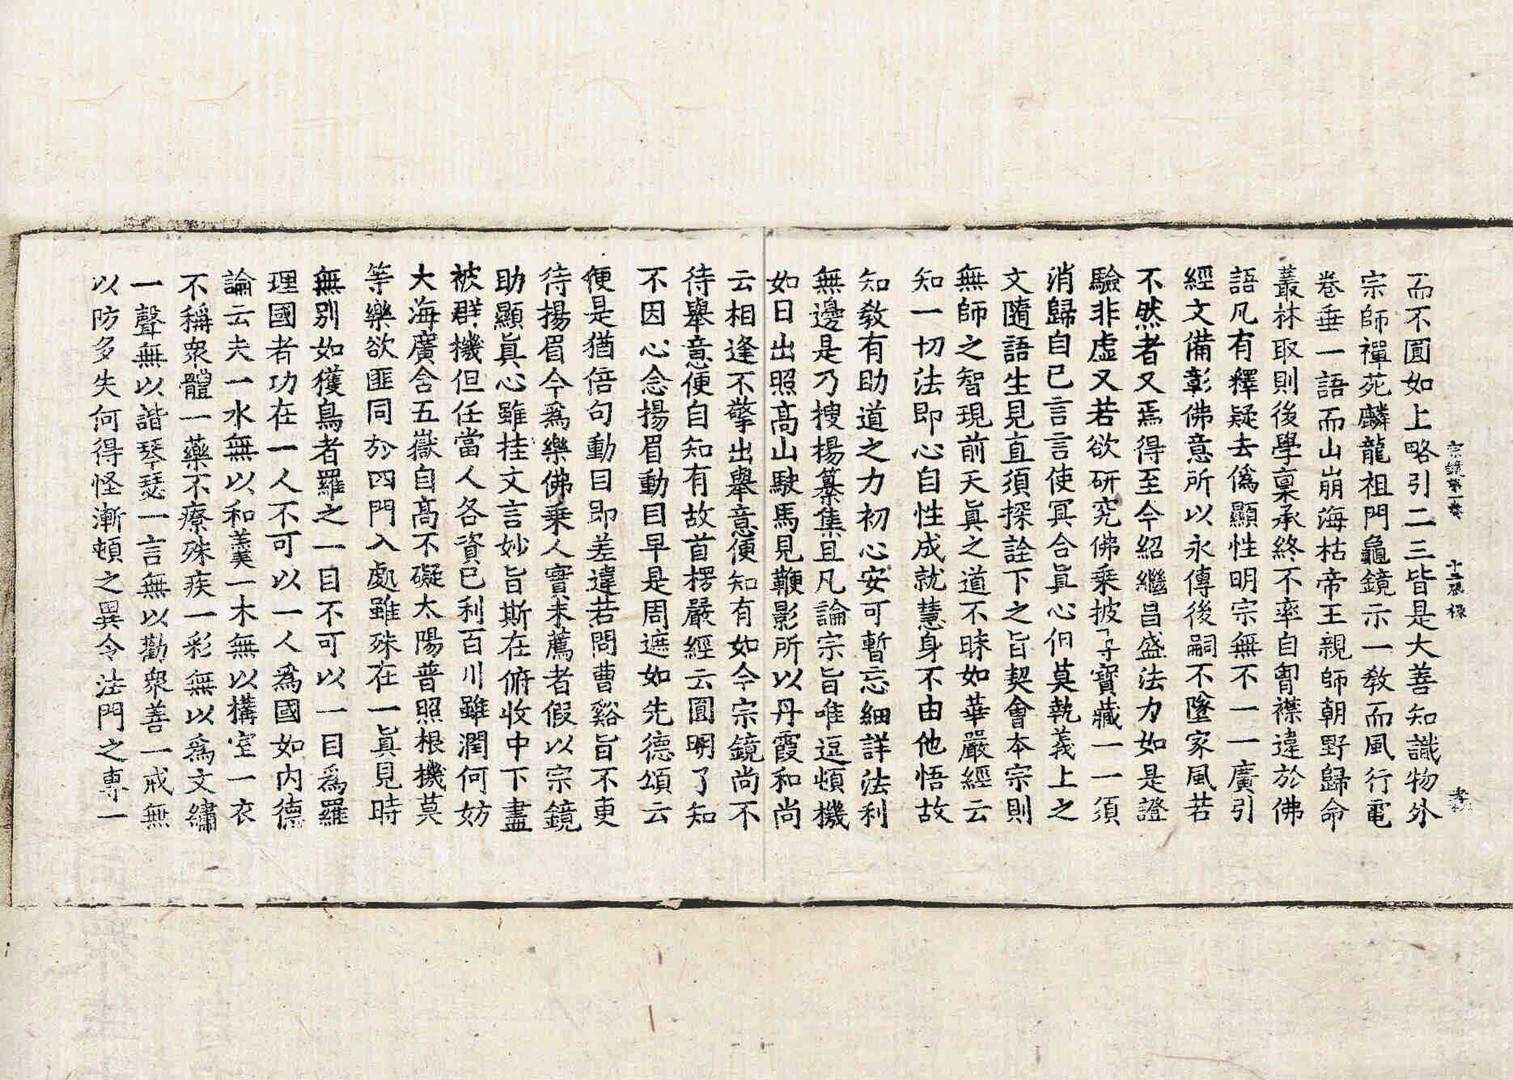 宗鏡第一卷　十二張　祿
而不圓如上略引二三皆是大善知識物外
宗師禪苑麟龍祖門龜鏡示一教而風行電
卷垂一語而山崩海枯帝王親師朝野歸命
叢林取則後學稟承終不率自胷襟違於佛
語凡有釋疑去僞顯性明宗無不一一廣引
經文備彰佛意所以永傳後嗣不墜家風若
不然者又焉得至今紹繼昌盛法力如是證
驗非虛又若欲研究佛乘披尋寶藏一一須
消歸自己言言使冥合眞心但莫執義上之
文隨語生見直須探詮下之旨契會本宗則
無師之智現前天眞之道不昧如華嚴經云
知一切法即心自性成就慧身不由他悟故
知教有助道之力初心安可暫忘細詳法利
無邊是乃搜揚纂集且凡論宗旨唯逗頓機
如日出照高山駛馬見鞭影所以丹霞和尚
云相逢不擎出舉意便知有如今宗鏡尚不
待舉意便自知有故首楞嚴經云圓明了知
不因心念揚眉動目早是周遮如先德頌云
便是猶倍句動目即差違若問曹谿旨不更
待揚眉今爲樂佛乘人實未薦者假以宗鏡
助顯眞心雖挂文言妙旨斯在俯收中下盡
被群機但任當人各資已利百川雖潤何妨
大海廣含五嶽自高不礙太陽普照根機莫
等樂欲匪同於四門入處雖殊在一眞見時
無別如獲鳥者羅之一目不可以一目爲羅
理國者功在一人不可以一人爲國如內德
論云夫一水無以和羹一木無以構室一衣
不稱衆體一藥不療殊疾一彩無以爲文繡
一聲無以諧琴瑟一言無以勸衆善一戒無
以防多失何得怪漸頓之異令法門之專一